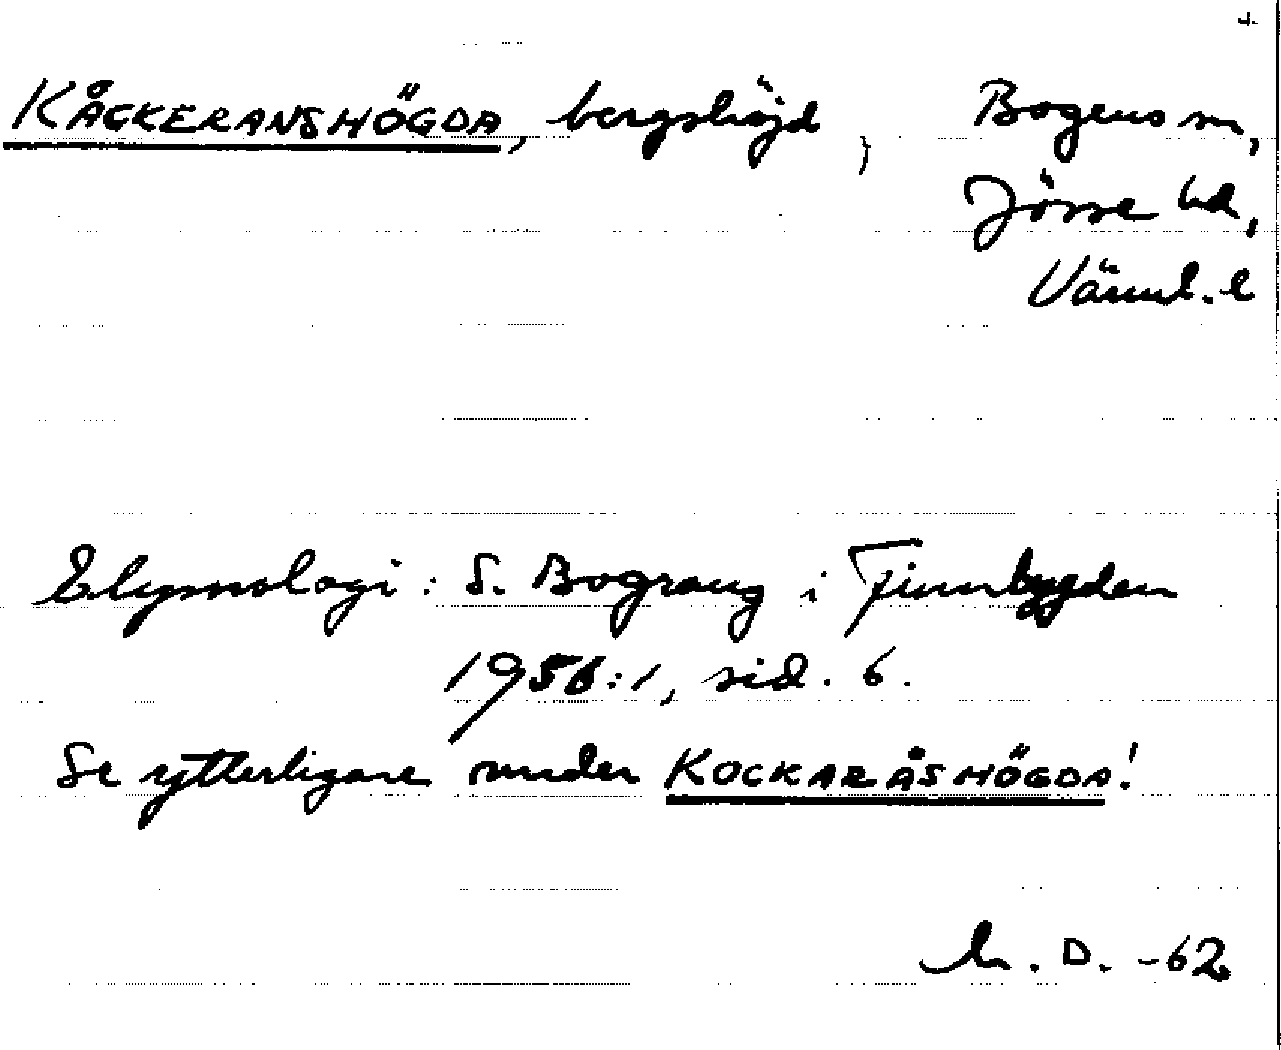 4.
KÅCKERANSHÖGDA, bergshöjd, Bogens sn,
Jösse hd,
Värml. l
Etymologi: S. Bograng i Finnbygden
1956:1, sid. 6.
Se ytterligare under KOCKARÅSHÖGDA!
D. -62